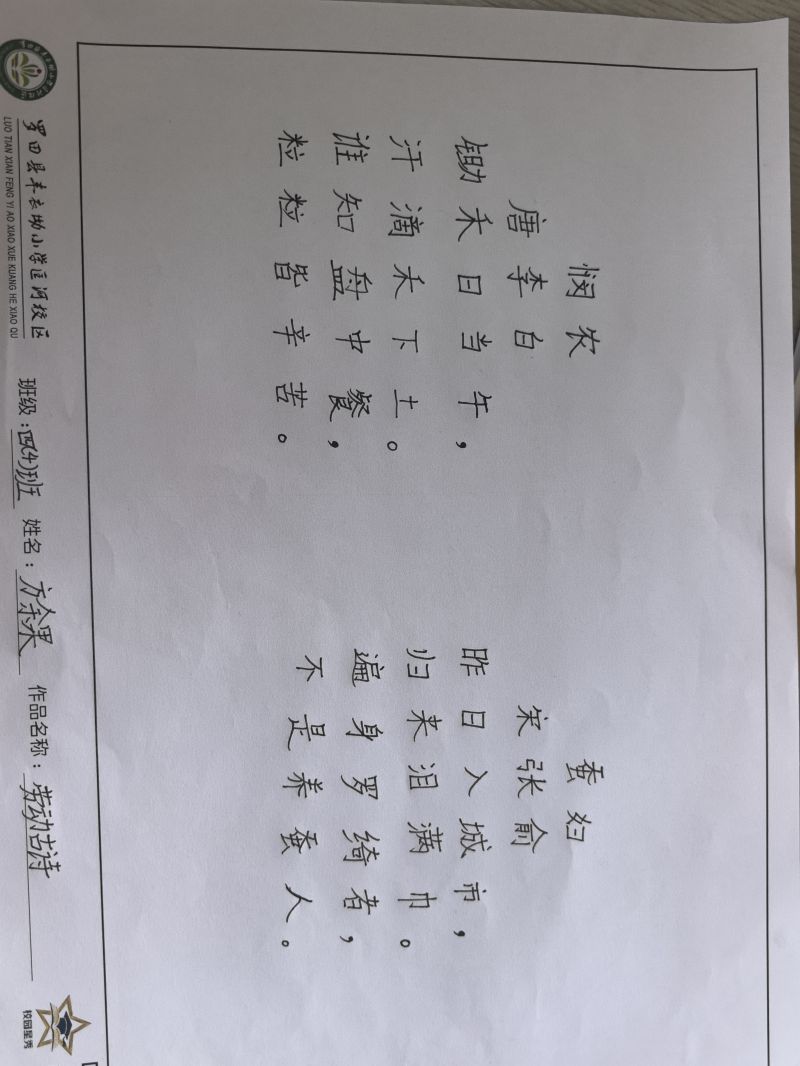 悯农
唐 李白
锄禾日当午，
汗滴禾下土。
谁知盘中餐，
粒粒皆辛苦。
蚕妇
宋 张俞
昨日入城市，
归来泪满巾。
遍身罗绮者，
不是养蚕人。
罗田县丰衣坳小学匡河校区
LUO TIAN XIAN FENG YI AO XIAO XUE KUANG HE XIAO QU
班级：四(4)班 姓名：方余果 作品名称：劳动古诗
校园星秀